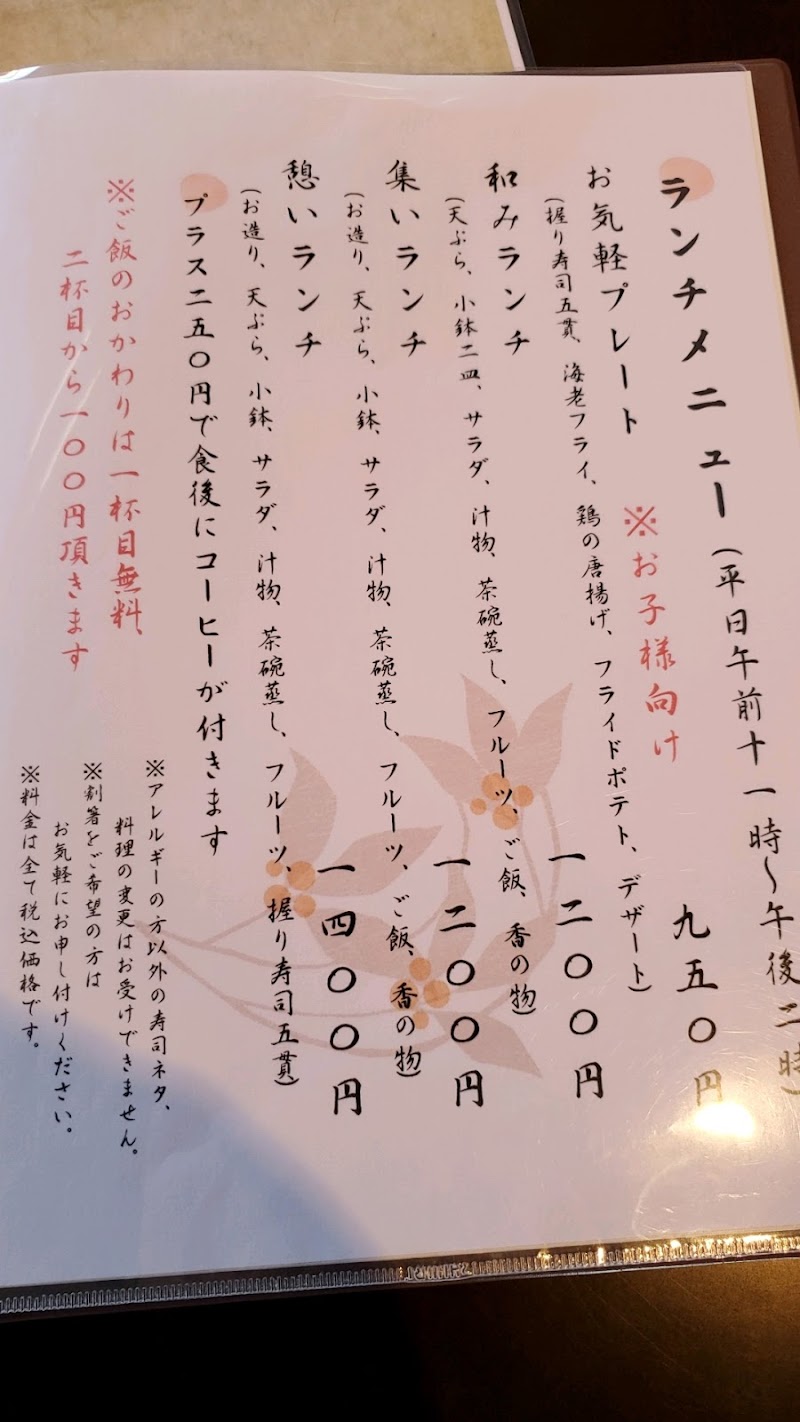 ランチメニュー(平日午前十一時~午後二時)
お気軽プレート ※お子様向け 九五〇円
(握り寿司五貫、海老フライ、鶏の唐揚げ、フライドポテト、デザート)
和みランチ 一二〇〇円
(天ぷら、小鉢二皿、サラダ、汁物、茶碗蒸し、フルーツ、ご飯、香の物)
集いランチ 一二〇〇円
(お造り、天ぷら、小鉢、サラダ、汁物、茶碗蒸し、フルーツ、ご飯、香の物)
憩いランチ 一四〇〇円
(お造り、天ぷら、小鉢、サラダ、汁物、茶碗蒸し、フルーツ、握り寿司五貫)
プラス二五〇円で食後にコーヒーが付きます
※ご飯のおかわりは一杯目無料、
二杯目から一〇〇円頂きます
※アレルギーの方以外の寿司ネタ、
料理の変更はお受けできません。
※割箸をご希望の方は
お気軽にお申し付けください。
※料金は全て税込価格です。